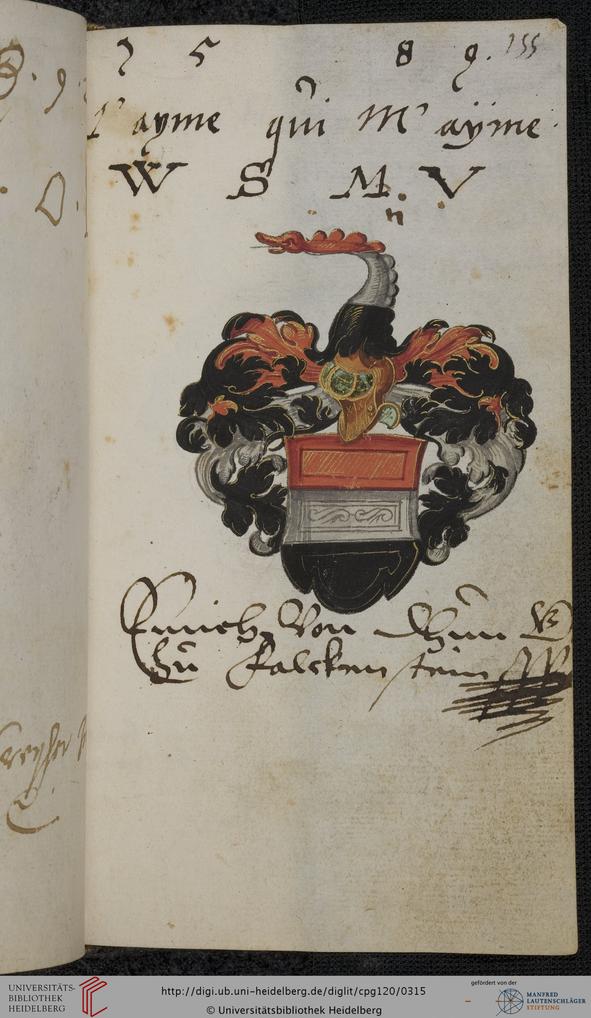 1 5 8 9. 155
J'ayme qui M'aÿme
W S M V
n
Emich Von Dhun
zu Falckenstein
UNIVERSITÄTS-
BIBLIOTHEK
HEIDELBERG
http://digi.ub.uni-heidelberg.de/diglit/cpg120/0315
© Universitätsbibliothek Heidelberg
gefördert von der
MANFRED
LAUTENSCHLÄGER
STIFTUNG